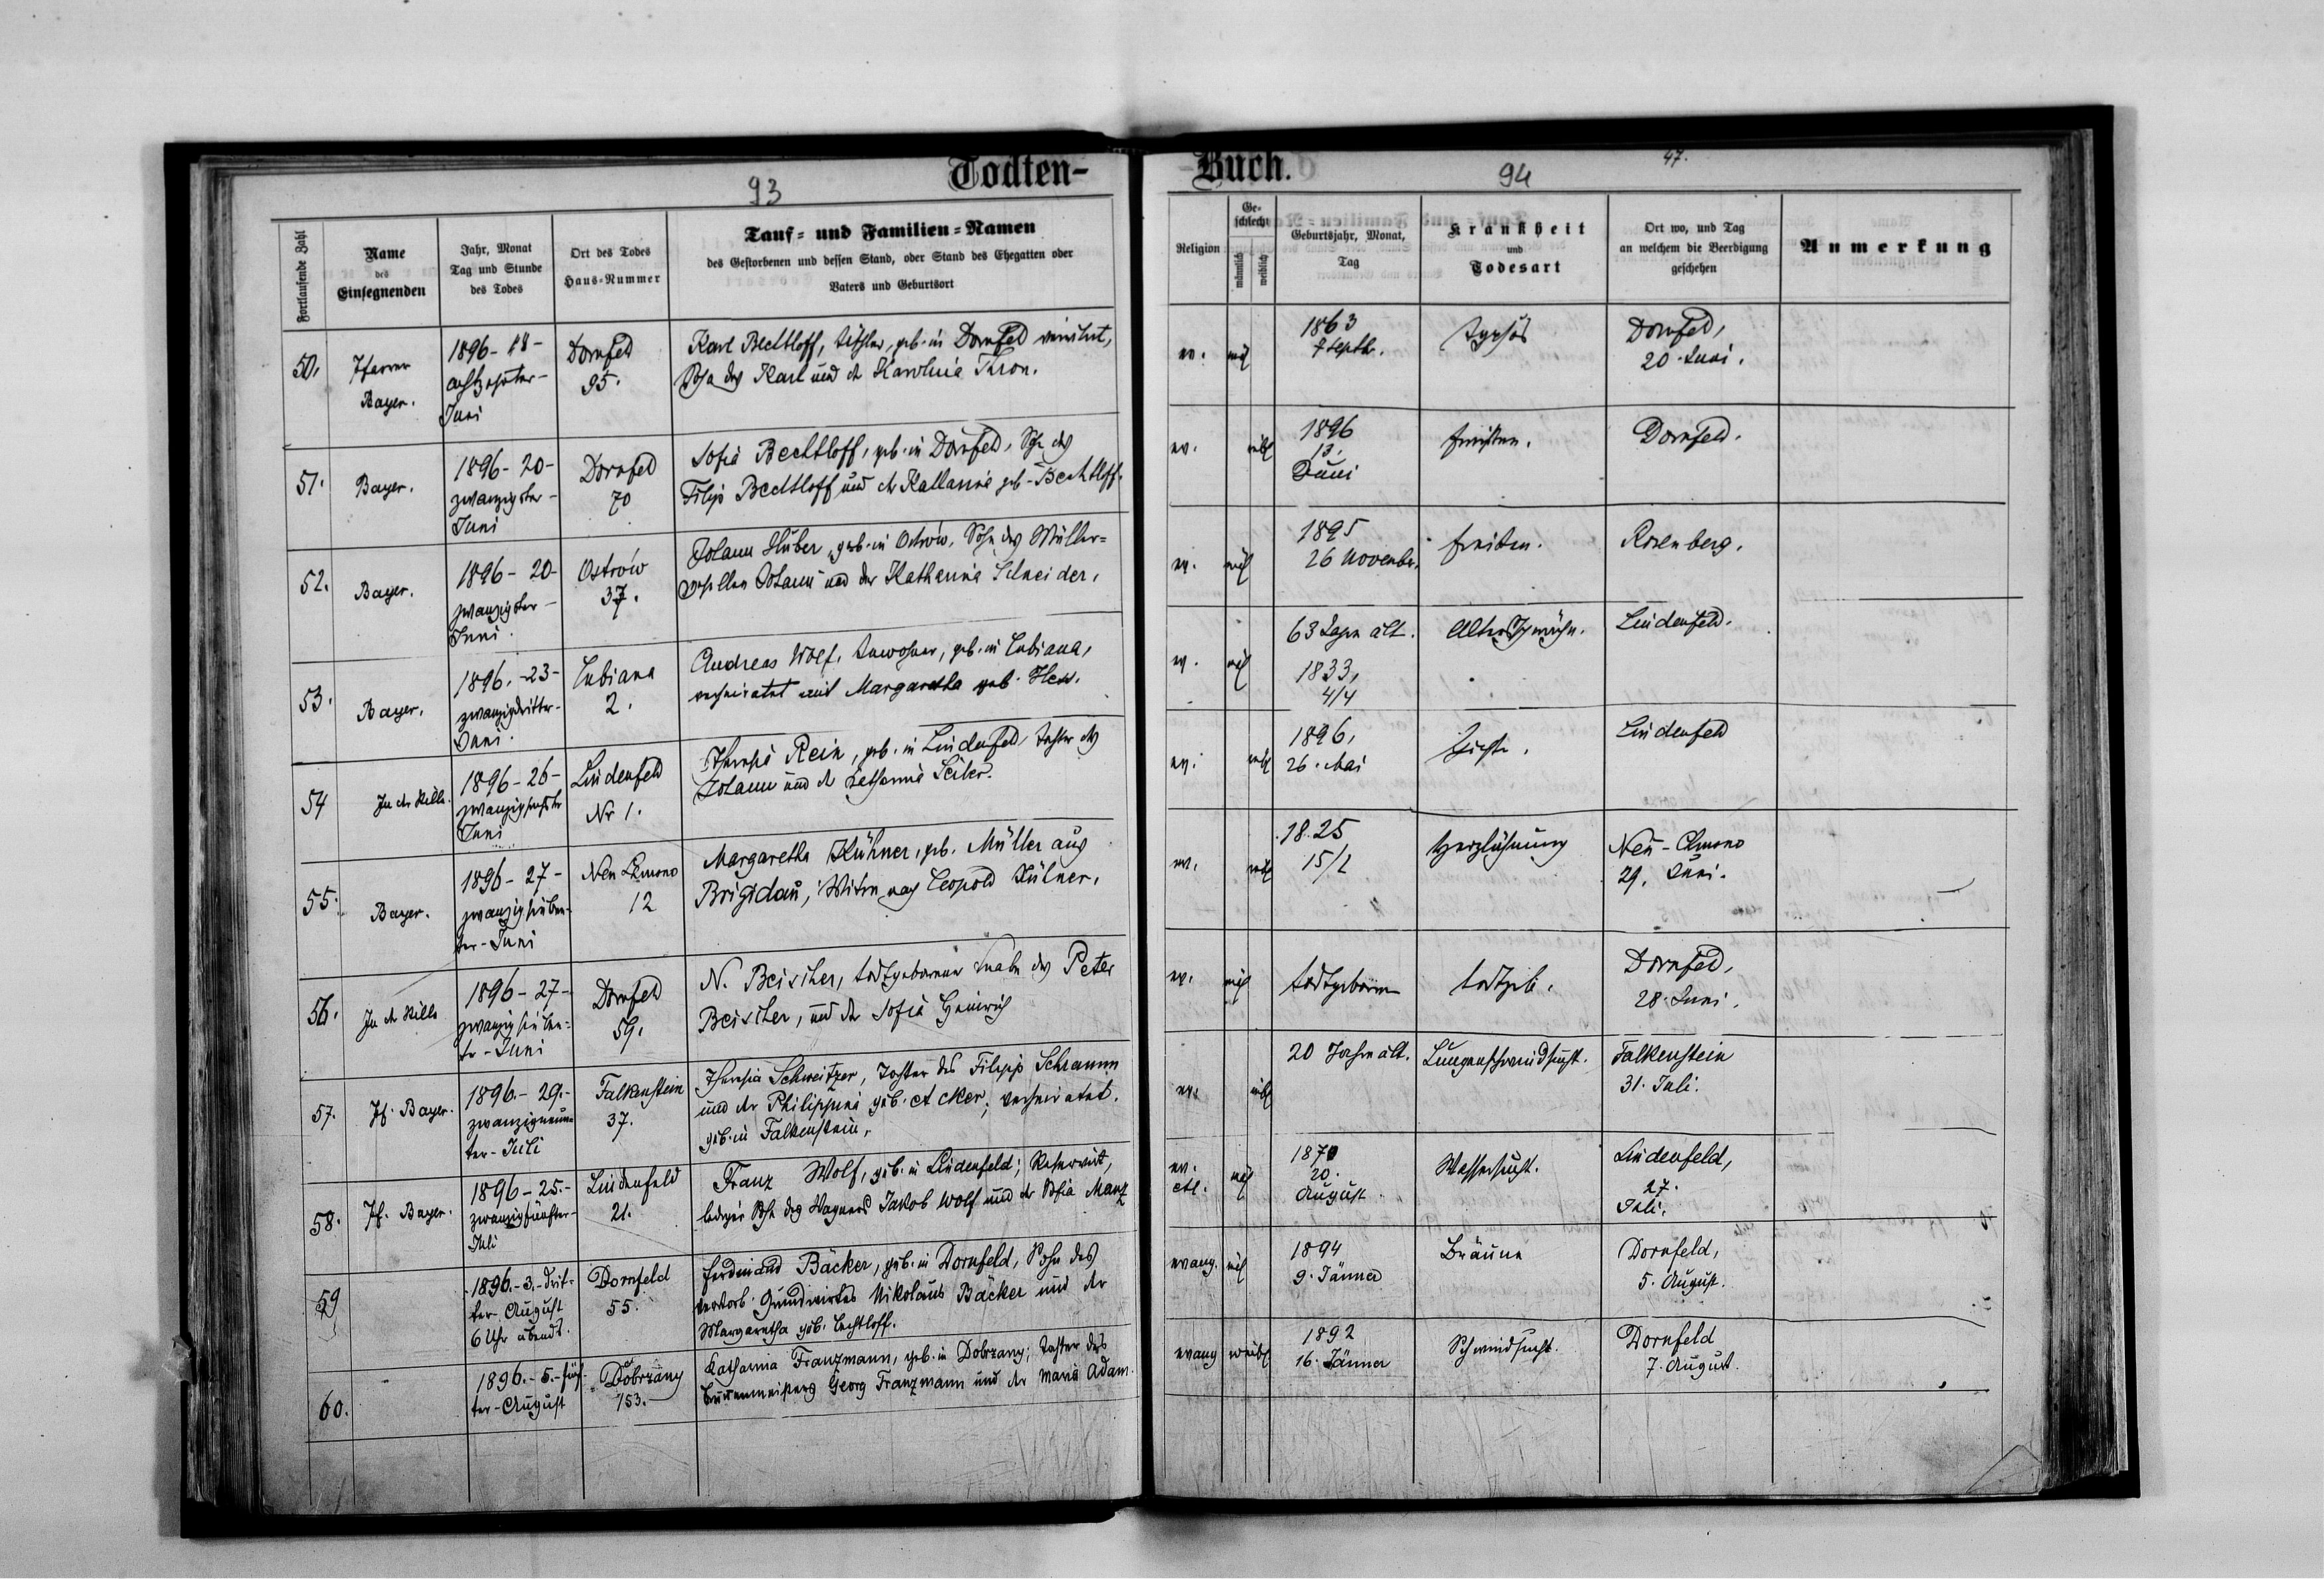 Todten-
93
Fortlaufende Zahl
Name
des
Einsegnenden
Jahr, Monat
Tag und Stunde
des Todes
Ort des Todes
Haus-Nummer
Tauf- und Familien-Namen
des Gestorbenen und dessen Stand, oder Stand des Ehegatten oder
Vaters und Geburtsort
50.
Pfarrer
Bayer.
1896 - 18 -
achtzehnter -
Juni
Dornfeld
95.
Karl Bechtloff, Tischler, geb. in Dornfeld
Sohn des Karl und der Karolina Kron.
51.
Bayer.
1896 - 20 -
zwanzigster -
Juni
Dornfeld
70
Sofia Bechtloff, geb. in Dornfeld, des
Filip Bechtloff und der Katharina geb. Bechtloff.
52.
Bayer.
1896 - 20 -
zwanzigster -
Juni.
Ostrów
37.
Johann Huber, geb. in Ostrów, Sohn des Müller=
gesellen Johann und der Katharina Schneider.
53.
Bayer.
1896. - 23 -
zwanzigdritter -
Juni.
Lubiana
2.
Andreas Wolf, Inwohner, geb. in Lubiana,
verheiratet mit Margaretha geb. Hess.
54
In der Stille.
1896 - 26 -
zwanzigsechster
Juni
Lindenfeld
Nr 1.
Theresia Rein, geb. in Lindenfeld, Tochter des
Johann und der Katharina Seiler.
55.
Bayer.
1896 - 27 -
zwanzigsieben-
ter - Juni
Neu Chmono
12
Margaretha Kühner, geb. Müller aus
Brigidau, Witwe nach Leopold Kühner.
56.
In der Stille
1896 - 27 -
zwanzigsieben=
ter - Juni
Dornfeld
59.
N. Beischer, todtgeborener Knabe des Peter
Beischer, und der Sofia Heinrich
57.
Pf. Bayer.
1896. - 29. -
zwanzigneun=
ter - Juli
Falkenstein
37.
Theresia Schweitzer, Tochter des Filipp Schramm
und der Philippina geb. Acker; verheiratet.
geb. in Falkenstein.
58.
Pf. Bayer.
1896 - 25. -
zwanzigfünfter -
Juli
Lindenfeld
21.
Franz Wolf, geb. in Lindenfeld; Reservist,
lediger Sohn des Wagners Jakob Wolf und der Sofia Manz
59
1896. - 3. - drit=
ter August
6 Uhr abends.
Dornfeld
55.
Ferdinand Bäcker, geb. in Dornfeld, Sohn des
verstorb. Grundwirtes Nikolaus Bäcker und der
Margaretha geb. Bechtloff.
60.
1896. - 5. - fünf-
ter - August
Dobrzany
153.
Katharina Franzmann, geb. in Dobrzany; Tochter des
Brunnenmeisters Georg Franzmann und der Maria Adam.
Buch.
94
47.
Religion
Ge-
schlecht
männlich
weiblich
Geburtsjahr, Monat,
Tag
Krankheit
und
Todesart
Ort wo, und Tag
an welchem die Beerdigung
geschehen
Anmerkung
ev.
1863
7 Septb.
Typhus
Dornfeld,
20. Juni.
ev.
1896
13.
Juni
Fraisen.
Dornfeld.
ev.
1895
26 November.
Fraisen.
Rosenberg.
ev.
63 Jahre alt.
1833,
4/4
Altersschwäche.
Lindenfeld.
ev.
1896,
26. Mai
Lindenfeld
ev.
1825
15/2
Herzlähmung
Neu-Chmono
29. Juni.
ev.
todtgeboren
todtgeb.
Dornfeld,
28. Juni.
ev.
20 Jahre alt.
Lungenschwindsucht.
Falkenstein
31. Juli.
ev.
1870
20.
August.
Wassersucht.
Lindenfeld,
27.
Juli.
evang.
1894
9. Jänner
Bräune
Dornfeld,
5. August.
evang
weibl
1892
16. Jänner
Schwindsucht.
Dornfeld
7. August.